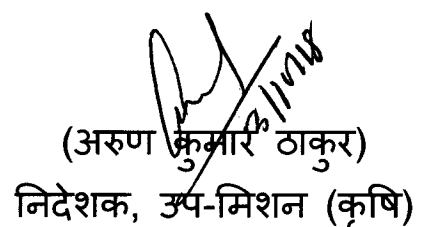 (अरुण कुमार ठाकुर)
निदेशक, उप-मिशन (कृषि)